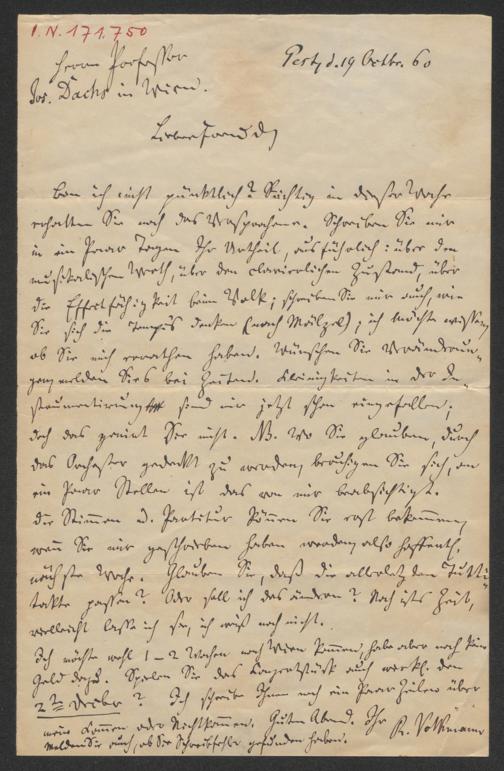 I. N. 171.750
Herrn Professor
Pesth d. 19 Octbr. 60
Jos. Dachs in Wien.
Lieber Freund!
Bin ich nicht pünktlich? Richtig in dieser Woche
erhalten Sie noch das Versprochene. Schreiben Sie mir
in ein Paar Tagen Ihr Urtheil, ausführlich: über den
musikalischen Werth, über den clavierlichen Zustand, über
die Effektfähigkeit beim Volk; schreiben Sie mir auch, wie
Sie sich die Tempis denken (nach Mälzel); ich möchte wissen,
ob Sie mich errathen haben. Wünschen Sie Veränderun-
gen, melden Sies bei Zeiten. Kleinigkeiten in der In-
strumentirung sind mir jetzt schon eingefallen;
doch das genirt Sie nicht. NB. Wo Sie glauben, durch
das Orchester gedeckt zu werden, beruhigen Sie sich, an
ein Paar Stellen ist das von mir beabsichtigt.
Die Stimmen u. Partitur können Sie erst bekommen,
wenn Sie mir geschrieben haben werden, also hoffentl.
nächste Woche. Glauben Sie, daß die allerletzten Tutti-
takte passen? Oder soll ich das ändern? Noch ists Zeit,
vielleicht lasse ich sie, ich weiß noch nicht.
Ich möchte wohl 1-2 Wochen nach Wien kommen, habe aber noch kein
Geld dazu. Spielen Sie das Konzertstück auch wirkl. den
2ten Decbr? Ich schreibe Ihnen noch ein Paar Zeilen über
mein Kommen oder Nichtkommen. Guten Abend. Ihr
R. Volkmann
Melden Sie auch, ob Sie Schreibfehler gefunden haben.